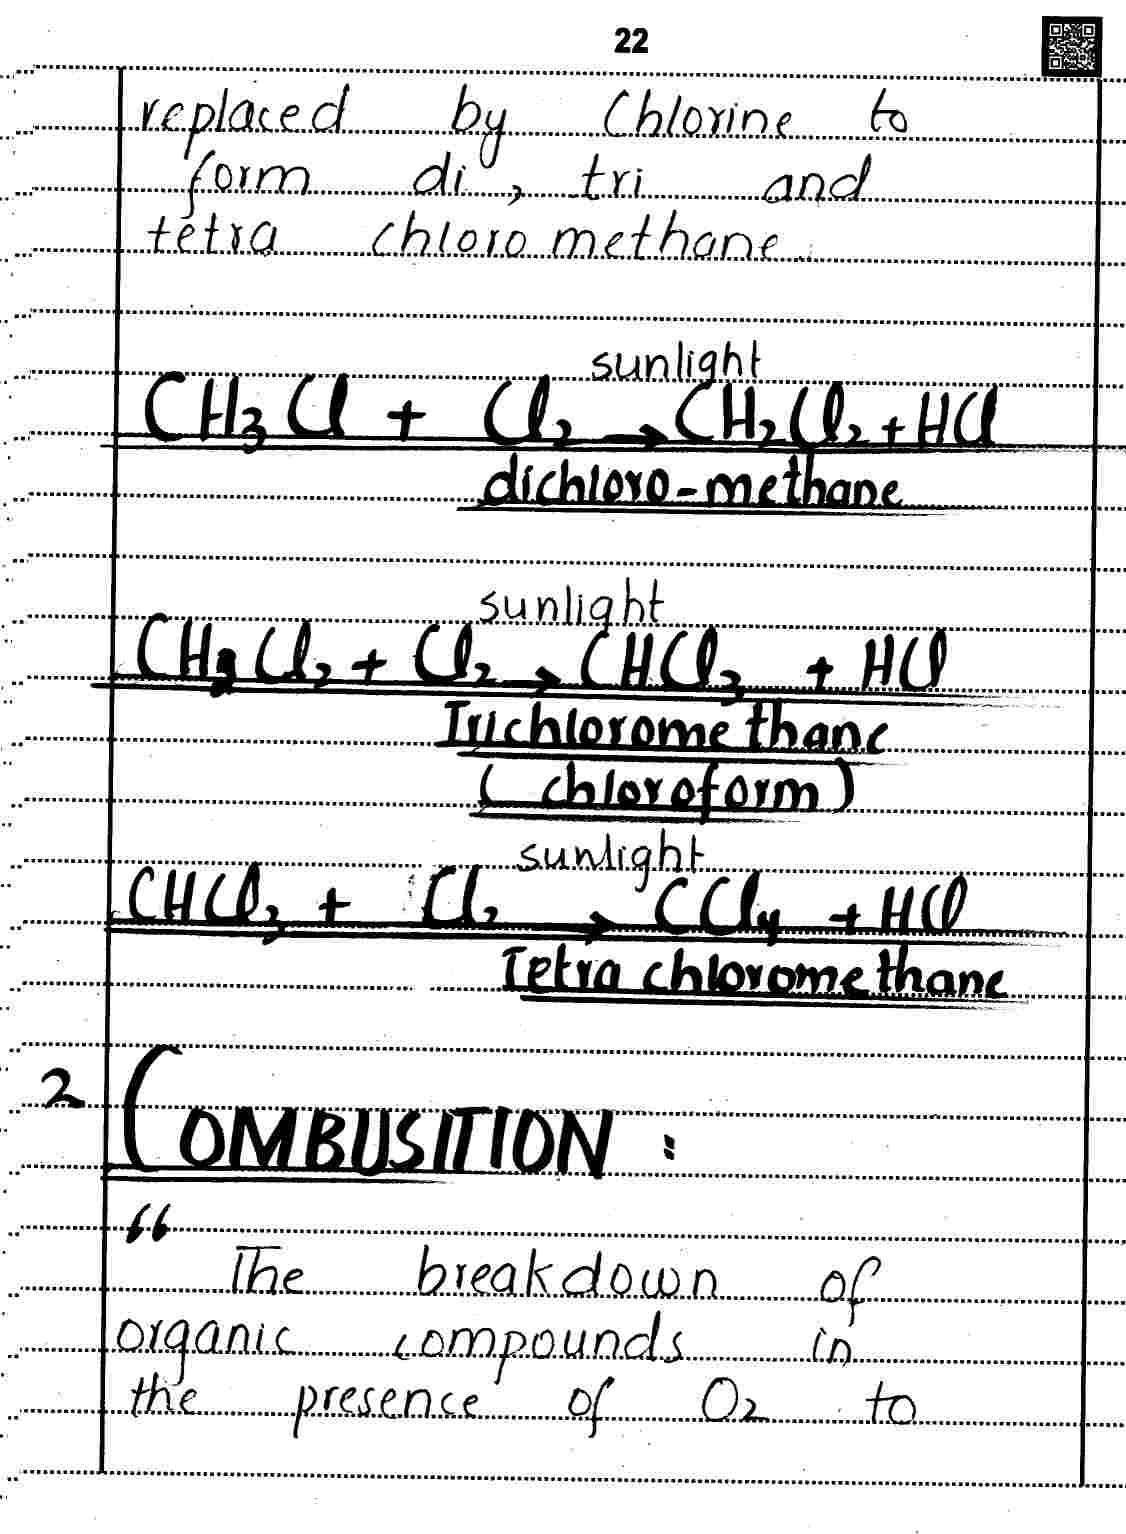 22
replaced by Chlorine to
form di, tri and
tetra chloro methane.
sunlight
CH₃Cl + Cl₂ → CH₂Cl₂ + HCl
dichloro-methane
sunlight
CH₂Cl₂ + Cl₂ → CHCl₃ + HCl
Trichloromethane
(chloroform)
sunlight
CHCl₃ + Cl₂ → CCl₄ + HCl
Tetra chloromethane
2 COMBUSITION :
“
The breakdown of
organic compounds in
the presence of O₂ to